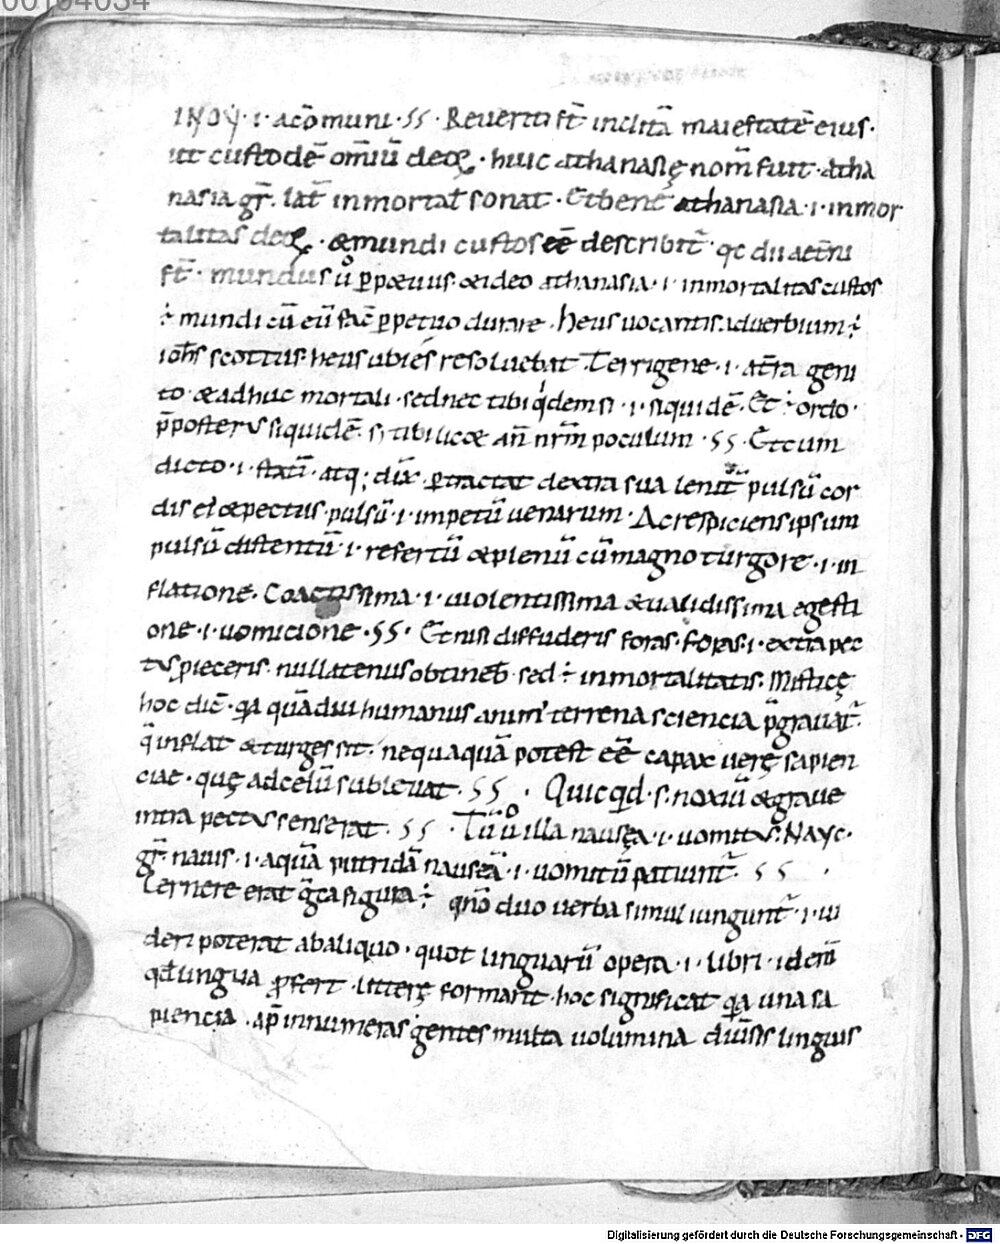 00104034
ΙΝΟΥ · i · acōmuni · SS · Reverti st̄ inclitā maiestatē eius ·
ut custodē om̄iū deoꝝ · huic athanasię nom̄ fuit · Atha
nasia gr̄ · lat̄ inmortal̄ sonat · Et bene athanasia · i · inmor
talitas deoꝝ · & mundi custos eē describit̄ · qc dii aet̄ni
st̄ · mundus ů ꝑpetuus · & ideo athanasia · i · inmortalitas custos
÷ mundi cū eū fac̄ ꝑpetuo durare · heus vocantis adverbium ÷
ioh̄s scottus · heus ubi és resoluebat Terrigene · i · at̄ra geni
to · & adhuc mortali · sed nec tibi qͥdem si · i · siquidē · Et ÷ ordo ·
p̄posterus siquidē · si tibi lic& an̄ nr̄m poculum · SS · Et cum
dicto · i · statī · atq; dix̄ · ꝑtractat dextra sua lenit̄ pulsū cor
dis ei & pectus · pulsū · i · impetū venarum · Ac respiciens ipsum
pulsū distentū · i · refertū & plenū cū magno turgore · i · in
flatione · Coactissima · i · violentissima & validissima egesti
one · i · vomicione · SS · Et nisi diffuderis foras · foras · i · extra pec
tus pieceris · nullatenus obtineb̄ · sed ÷ inmortalitatis · Misticę
hoc dic̄ · qa quādiu humanus anim' terrena sciencia p̄gravat̄ ·
q̄ inflat & turgessit · nequaquā potest eē capax verę sapien
ciae · quę ad celū subievat · SS · Quicqd · s · noxiū & grave
intra pectus senserat · SS · Tū ů illa nausea · i · vomitus · Nayc ·
gr̄ · navis · i · aquā putridā nauseā · i · vomitū patiunt̄ · SS ·
Cernere erat gͣca figura ÷ qn̄o duo verba simul iungunt̄ · i · vi
deri poterat ab aliquo · quot linguarū opera · i · libri · idem̄
qd lingua ꝓfert · litterę formant · hoc significat qa una sa
piencia · ap̄ innumeras gentes multa volumina div̄sis linguis
Digitalisierung gefördert durch die Deutsche Forschungsgemeinschaft - DFG